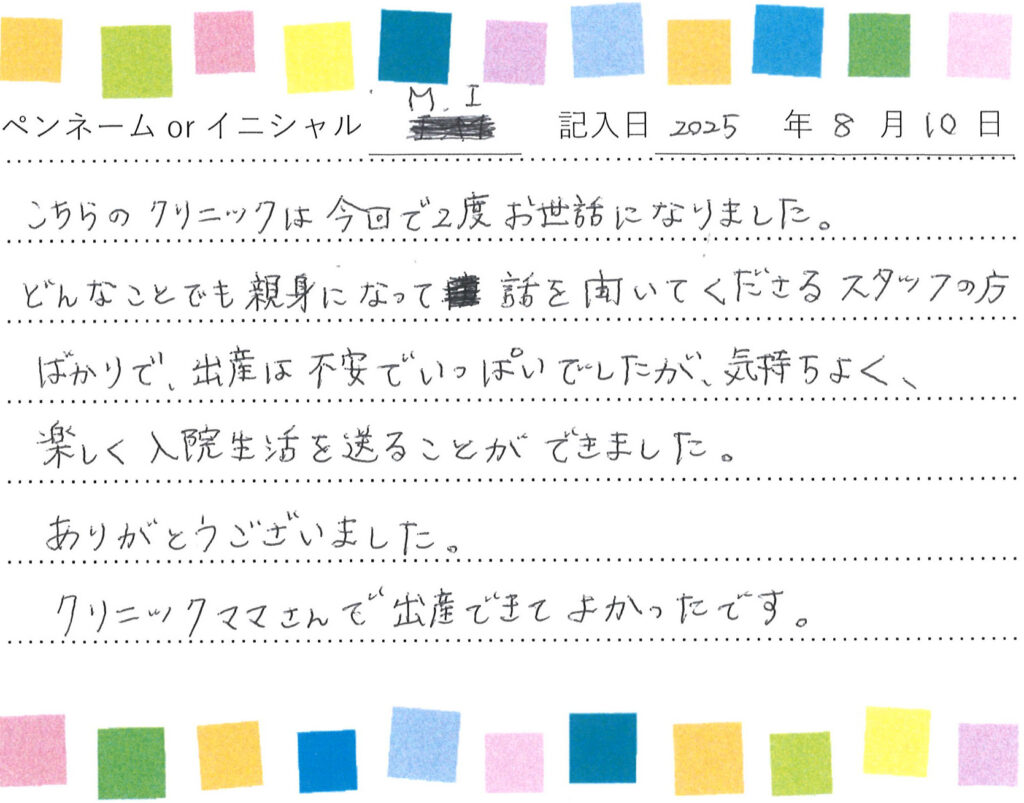 M. I
ペンネーム or イニシャル 記入日 2025 年 8 月 10 日
こちらの クリニックは 今回で2度 お世話になりました。
どんなことでも 親身になって 話を 聞いてくださる スタッフの方
ばかりで、出産は 不安でいっぱいでしたが、気持ちよく、
楽しく 入院生活を 送ることが できました。
ありがとうございました。
クリニックママさんで 出産できて よかったです。